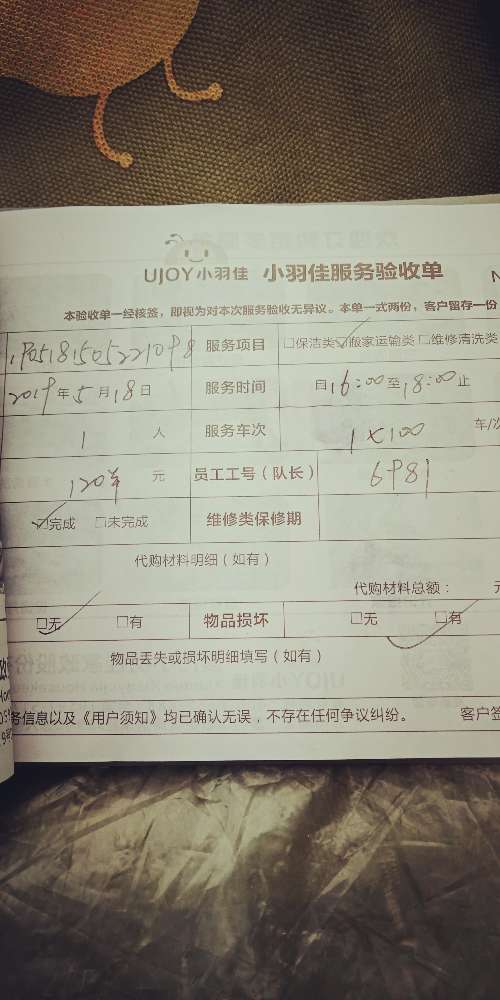 UJOY小羽佳 小羽佳服务验收单 N
本验收单一经核签，即视为对本次服务验收无异议。本单一式两份，客户留存一份
服务项目 □保洁类 ☑搬家运输类 □维修清洗类
2019年5月18日 服务时间 自16:00至18:00止
1 人 服务车次 1×100 车/次
120 元 员工工号（队长） 6981
☑完成 □未完成 维修类保修期
代购材料明细（如有）
代购材料总额： 元
☑无 □有 物品损坏 □无 □有
物品丢失或损坏明细填写（如有）
务信息以及《用户须知》均已确认无误，不存在任何争议纠纷。 客户签